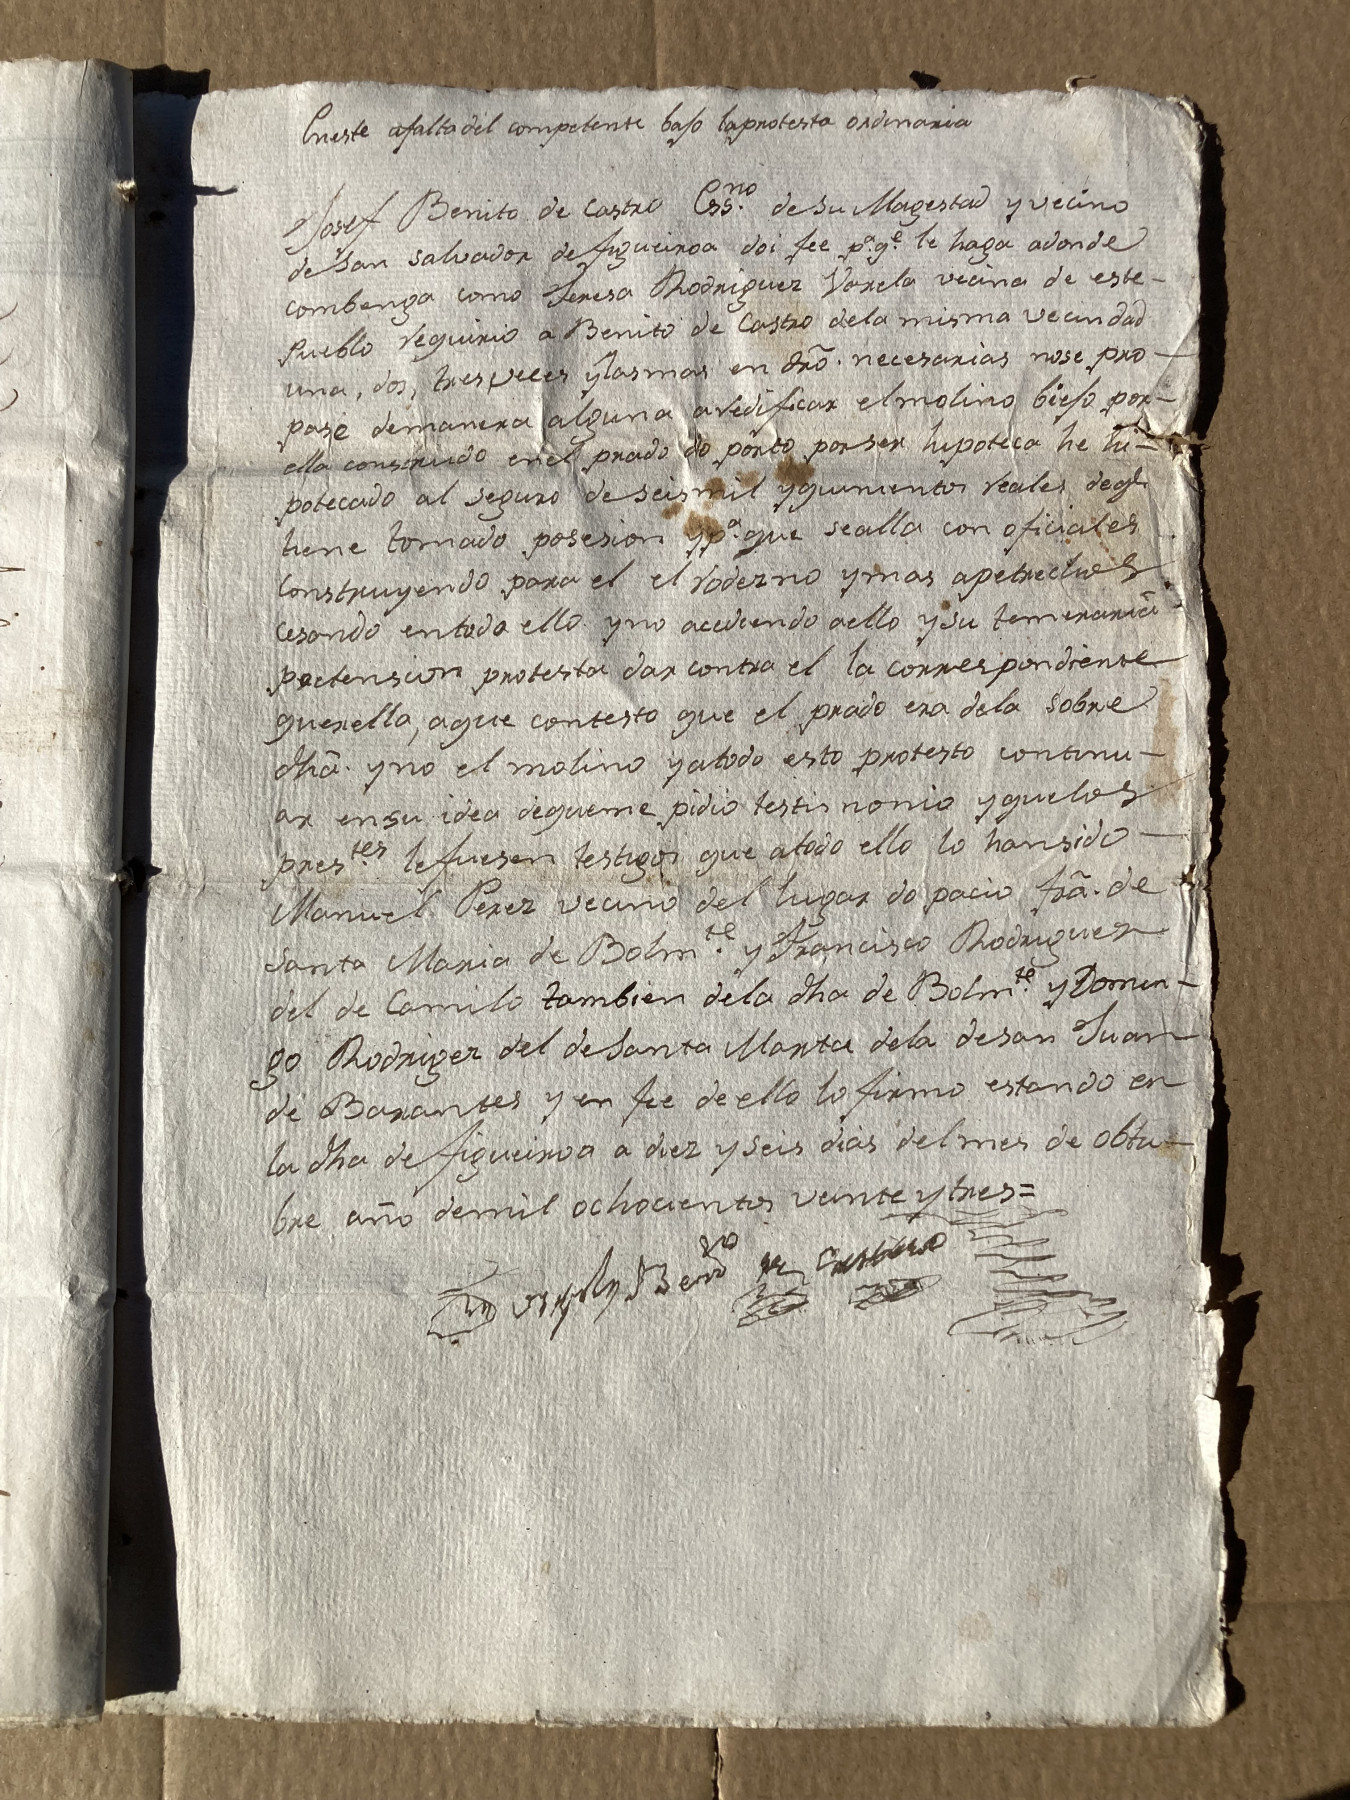 Eneste afalta del competente bajo la protesta ordinaria
Josef Benito de Castro Ess.no de Su Magestad y vecino
de San Salvador de figueiroa doi fee p.a q.e le haga adonde
combenga como Teresa Rodriguez Varela vecina de este-
Pueblo requirio a Benito de Castro dela misma vecindad
una, dos, tres veces y lasmas en dro. necesarias nose pro-
pase demanera alguna aredificar el molino biejo por-
ella construido en el prado do porto por ser hipoteca he hi-
potecado al seguro de seis mil y quinientos reales de q.e
tiene tomado posesion y p.a que sealla con oficiales
construyendo para el el rodezno y mas apetrechos
cesando entodo ello y no acediendo aello y su temeraria
pretension protesta dar contra el la correspondiente
querella, aque contesto que el prado era dela sobre
dha. y no el molino y atodo esto protesto continu-
ar ensu idea deque me pidio testimonio y que los
pres.tes le fuesen testigos que atodo ello lo han sido-
Manuel Perez vecino del lugar do pacio fra. de
Santa Maria de Bolm.te y Francisco Rodriguez
del de Camilo tambien dela dha de Bolm.te y Domin-
go Rodrigez del de Santa Marta dela de San Juan
de Barantes y en fee de ello lo firmo estando en
la dha de figueiroa a diez y seis dias del mes de obtu-
bre año de mil ochocientos veinte y tres=
Josef Benito de Castro